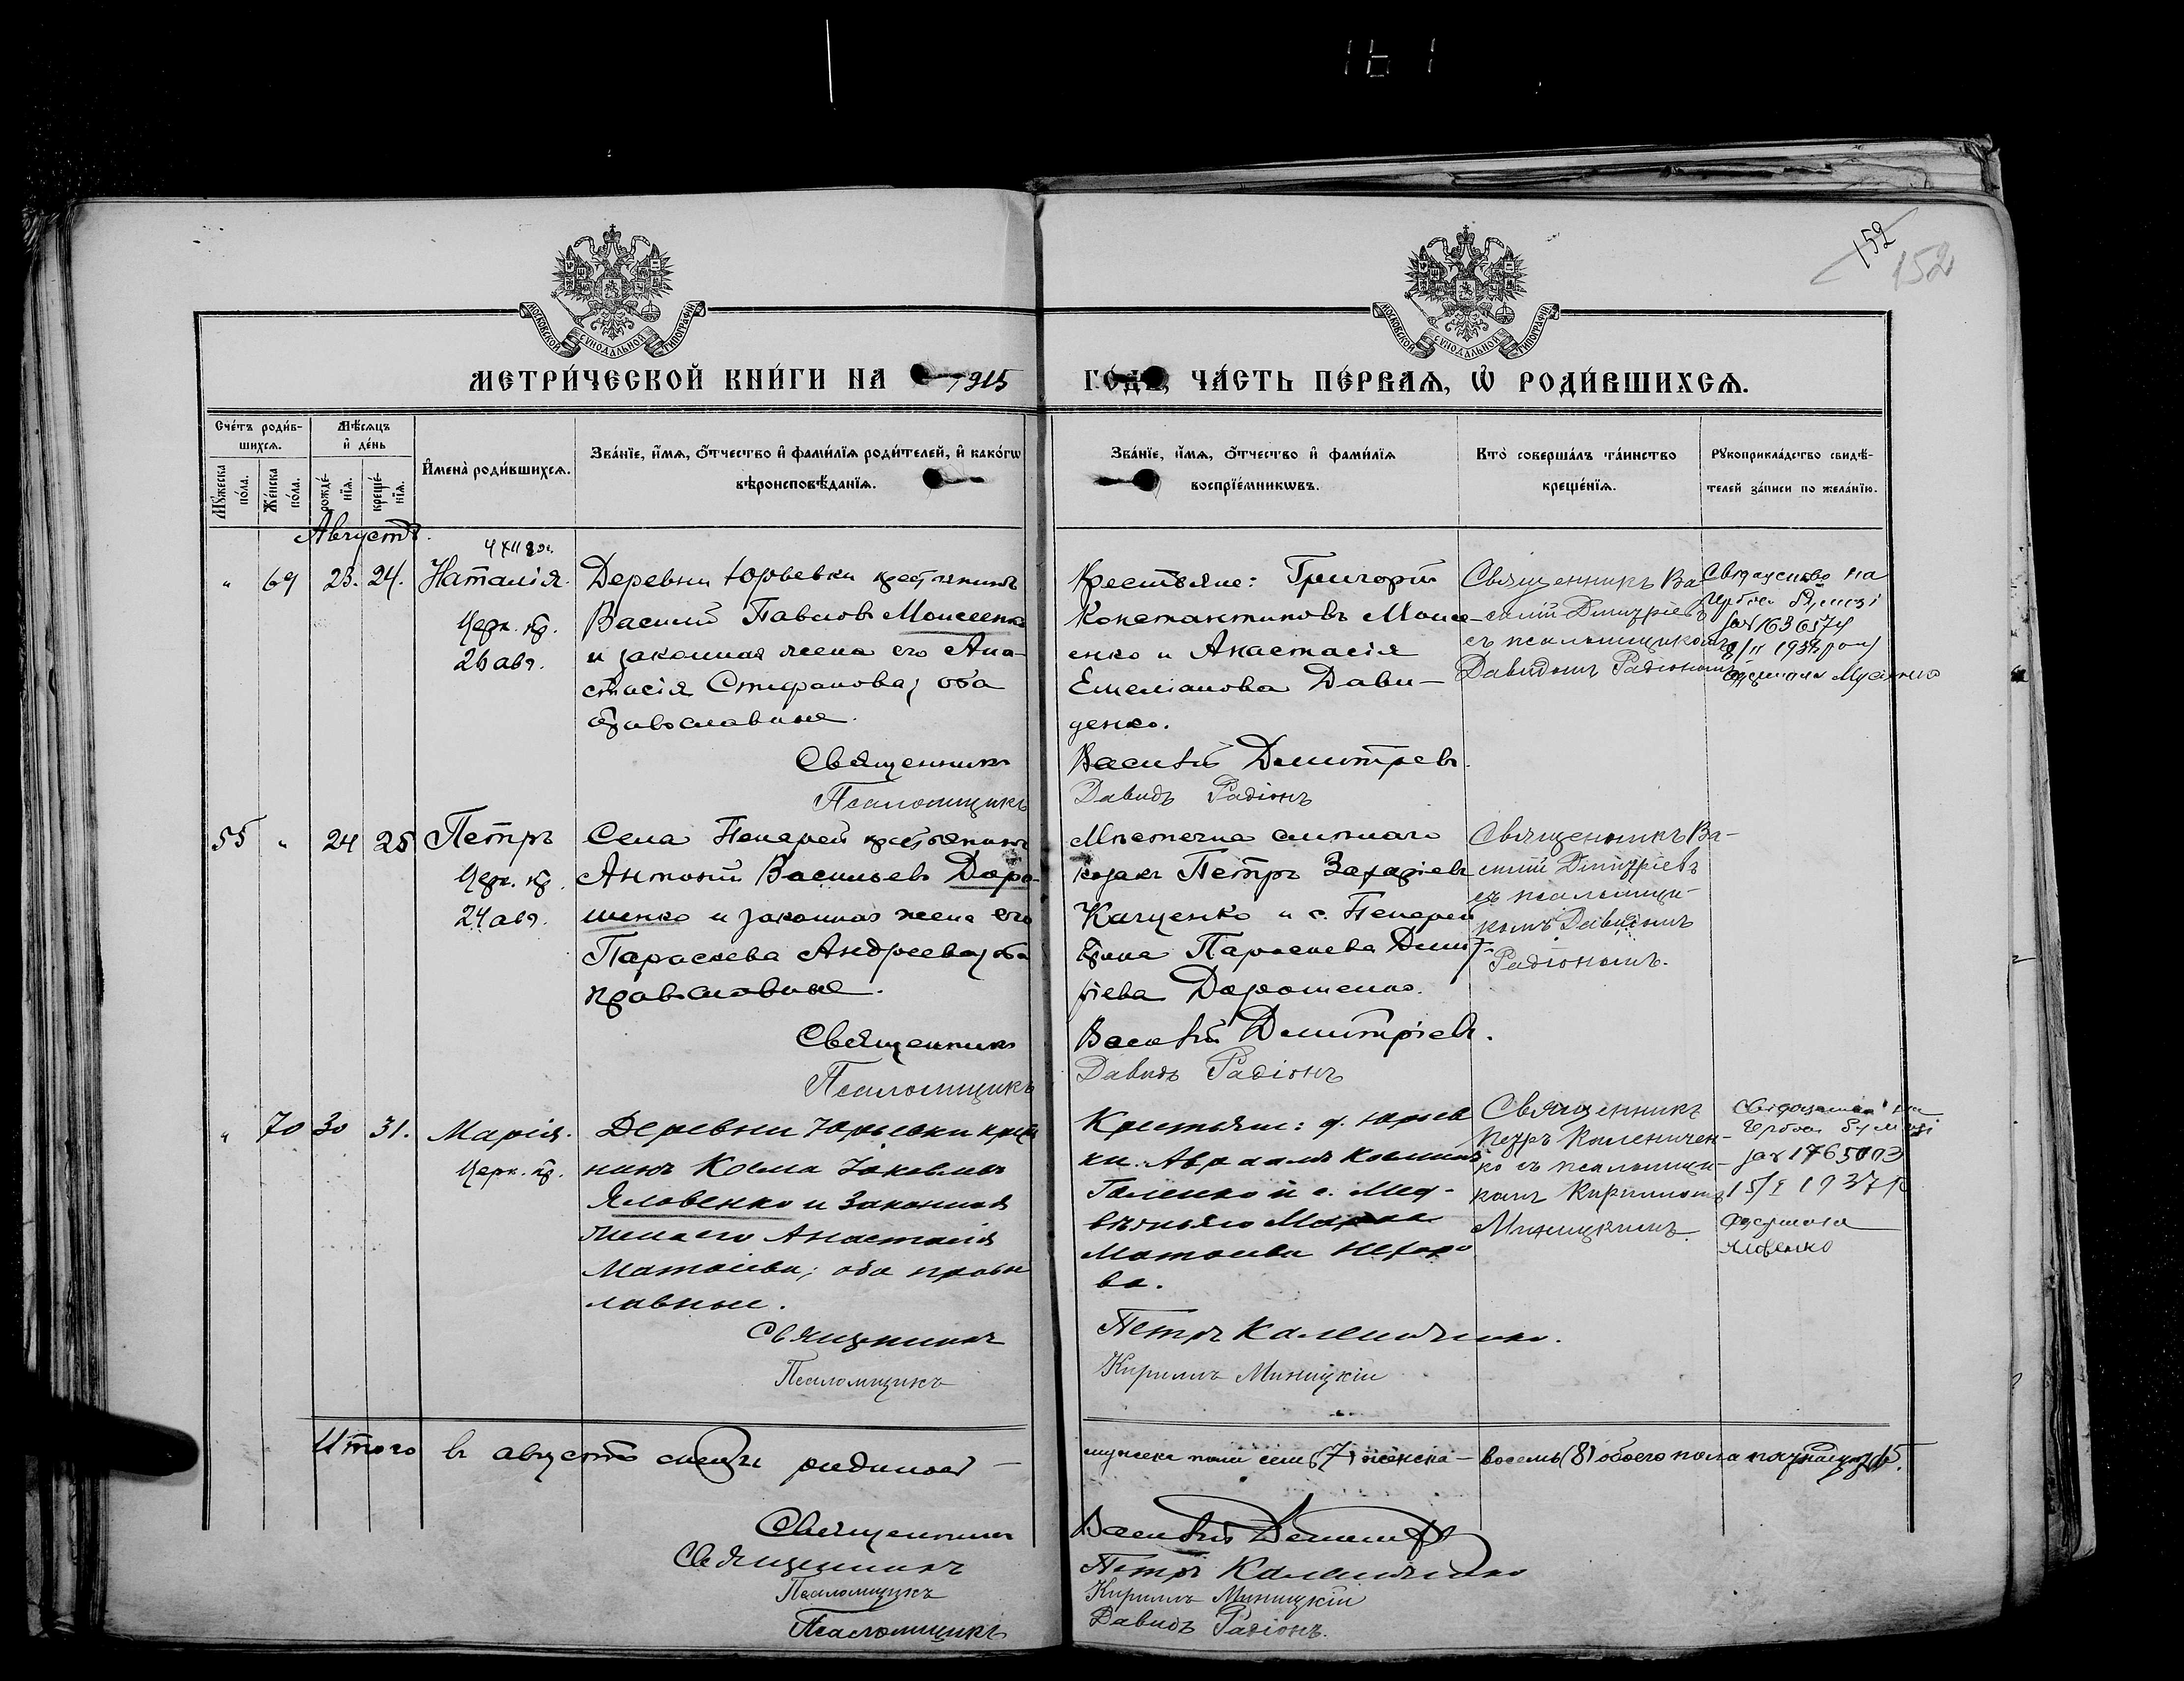 152
152
МОСКОВСКОЙ СѴНОДАЛЬНОЙ ТИПОГРАФІИ
МОСКОВСКОЙ СѴНОДАЛЬНОЙ ТИПОГРАФІИ
МЕТРИ́ЧЕСКОЙ КНИ́ГИ НА 1915
ГО́ДЪ, ЧА́СТЬ ПЕ́РВАѦ, Ѡ҆ РОДИ́ВШИХСѦ.
Сче́тъ роди́в-
шихсѧ.
Мꙋ́жеска по́ла.
Же́нска по́ла.
Мѣ́сѧцъ
и҆ де́нь
рожде́-
нїѧ.
креще́-
нїѧ.
И҆мена̀ роди́вшихсѧ.
Зва́нїе, и҆́мѧ, о҆́тчество и҆ фами́лїѧ роди́телей, и҆ како́гѡ
вѣроисповѣ́данїѧ.
Зва́нїе, и҆́мѧ, о҆́тчество и҆ фами́лїѧ
воспрїе́мникѡвъ.
Кто̀ соверша́лъ та́инство
креще́нїѧ.
Рꙋкоприкла́дство свидѣ́-
телей за́писи по жела́нїю.
Августъ.
" 69 23. 24. Наталія.
Церк. кр.
26 авг.
Деревни Юрьевки крестьянинъ
Василій Павловъ Моисеенко
и законная жена его Ана-
стасія Стефанова; оба
православные.
Священникъ
Псаломщикъ
Крестьяне: Григорій
Константиновъ Моисе-
енко и Анастасія
Емеліанова Дави-
денко.
Василій Димитріевъ.
Давидъ Радіонъ
Священникъ Ва-
силій Димитріевъ
съ псаломщикомъ
Давидомъ Радіономъ
Свідоцтво на
1636574
55 " 24 25 Петръ
Церк. кр.
24 авг.
Села Пекарей крестьянинъ
Антоній Васильевъ Доро-
шенко и законная жена его
Параскева Андреева; оба
православные.
Священникъ
Псаломщикъ
Мѣстечка
козакъ Петръ Захаріевъ
и с. Пекарей
Параскева Димит-
ріева Дорошенко.
Василій Димитріевъ.
Давидъ Радіонъ
Священникъ Ва-
силій Димитріевъ
съ псаломщи-
комъ Давидомъ
Радіономъ.
" 70 30 31. Марія.
Церк. кр.
Деревни Юрьевки крестья-
нинъ Косма Іаковлевъ
Яловенко и законная
жена его Анастасія
Матѳеева; оба правос-
лавные.
Священникъ
Псаломщикъ
Крестьяне: д. Юрьев-
ки Авраамъ Космовъ
Галенко и с. Мед-
Матѳеева
ва.
Петръ Калениченко.
Кириллъ Миницкій
Священникъ
Петръ Калениченко
съ псаломщи-
комъ Кирилломъ
Миницкимъ.
Свідоцтво на
15/I 1937 р
Яловенко
Итого въ августѣ мѣсяцѣ родилось —
мужеска пола семь (7) женска — восемь (8) обоего пола пятнадцать 15.
Священникъ
Священникъ
Псаломщикъ
Псаломщикъ
Василій Димитріевъ
Петръ Калениченко
Кириллъ Миницкій
Давидъ Радіонъ.